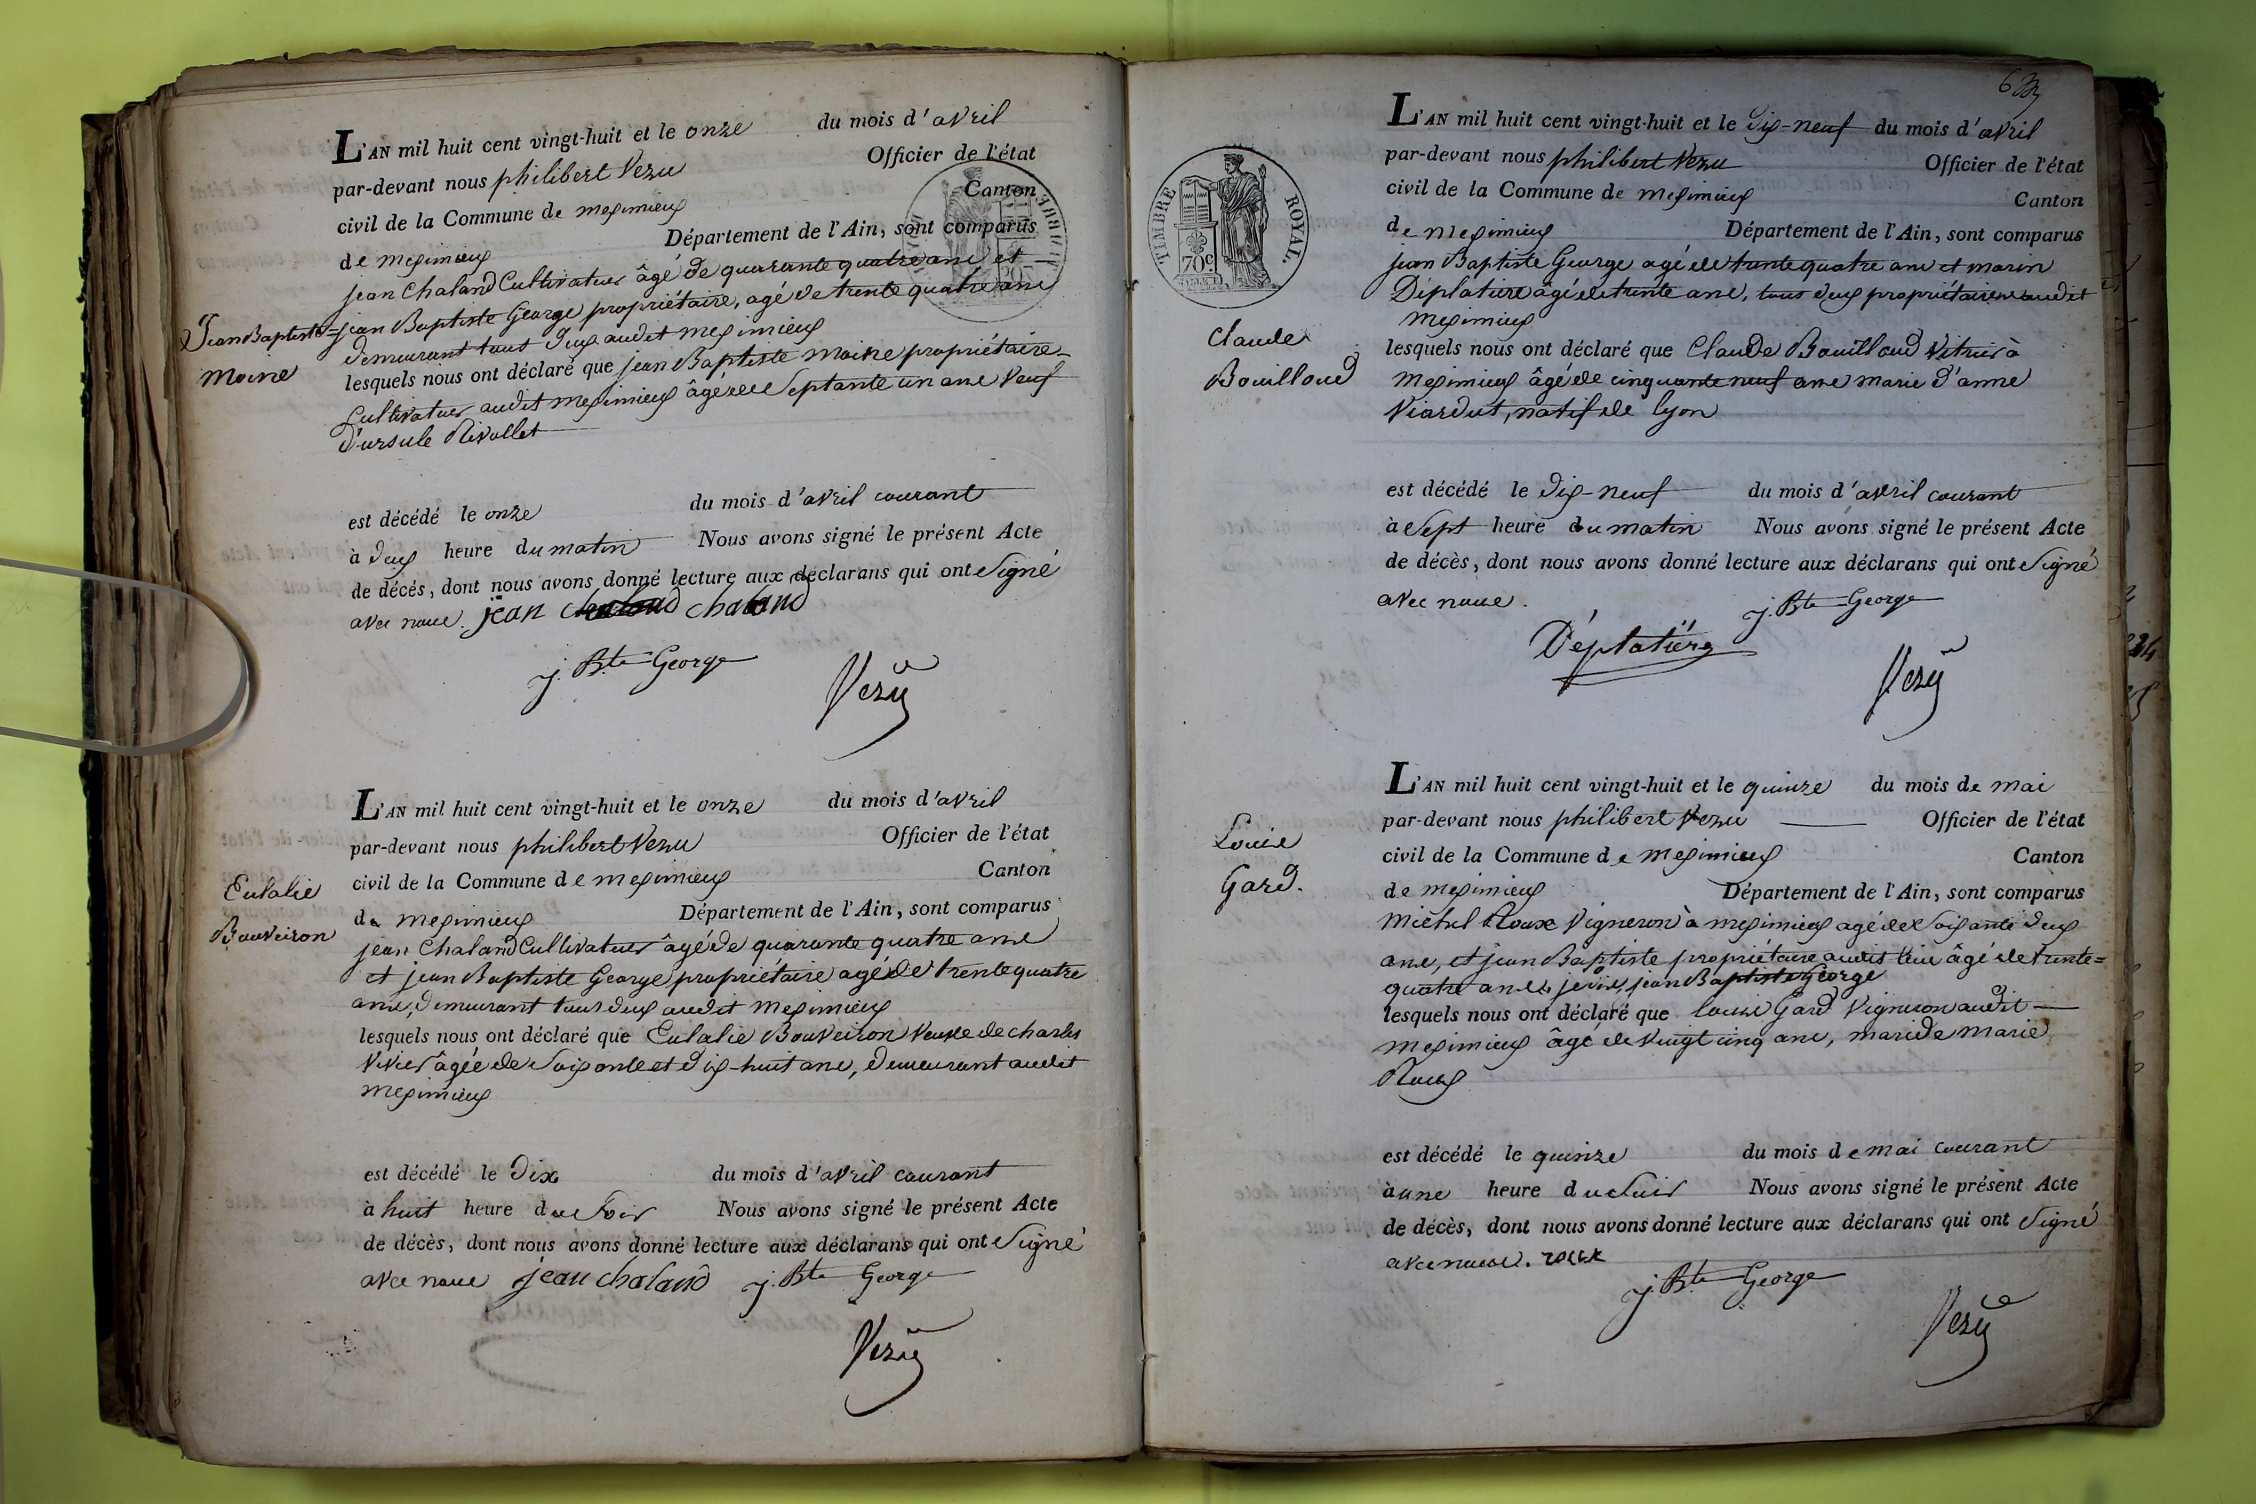 L'AN mil huit cent vingt-huit et le onze du mois d'avril
par-devant nous philibert Vezu Officier de l'état
civil de la Commune de meximieux Canton
de meximieux Département de l'Ain, sont comparus
jean Chaland Cultivateur âgé de quarante quatre ans et
jean Baptiste George propriétaire, agé de trente quatre ans
demeurant tous deux audit meximieux
Jean Baptiste
Moine
lesquels nous ont déclaré que jean Baptiste moine propriétaire
Cultivateur audit meximieux âgé de Septante un ans Veuf
d'ursule Rivollet
est décédé le onze du mois d'avril courant
à deux heure du matin Nous avons signé le présent Acte
de décès, dont nous avons donné lecture aux déclarans qui ont Signé
avec nous. jean chaland
j. Bte George
Vezu
L'AN mil huit cent vingt-huit et le onze du mois d'avril
par-devant nous philibert Vezu Officier de l'état
civil de la Commune de meximieux Canton
Eulalie
Bouveiron
de meximieux Département de l'Ain, sont comparus
jean Chaland Cultivateur âgé de quarante quatre ans
et jean Baptiste George propriétaire agé de trente quatre
ans, demeurant tous deux audit meximieux
lesquels nous ont déclaré que Eulalie Bouveiron veuve de charles
Vivier âgée de Soixante et dix-huit ans, demeurant audit
meximieux
est décédé le dix du mois d'avril courant
à huit heure du Soir Nous avons signé le présent Acte
de décès, dont nous avons donné lecture aux déclarans qui ont Signé
avec nous jean chaland j. Bte George
Vezu
L'AN mil huit cent vingt-huit et le dix-neuf du mois d'avril
par-devant nous philibert Vezu Officier de l'état
civil de la Commune de meximieux Canton
de meximieux Département de l'Ain, sont comparus
TIMBRE ROYAL.
70c
jean Baptiste George agé de trente quatre ans et marin
Déplatière âgé de trente ans, tous deux propriétaires audit
meximieux
Claude
Bouilloud
lesquels nous ont déclaré que Claude Bouilloud Vitrier à
meximieux âgé de cinquante neuf ans marié d'anne
Viardut, natif de lyon
est décédé le dix-neuf du mois d'avril courant
à Sept heure du matin Nous avons signé le présent Acte
de décès, dont nous avons donné lecture aux déclarans qui ont Signé
avec nous. j. Bte George
Déplatière
Vezu
L'AN mil huit cent vingt-huit et le quinze du mois de mai
par-devant nous philibert Vezu Officier de l'état
civil de la Commune de meximieux Canton
Louis
Gard.
de meximieux Département de l'Ain, sont comparus
Michel Roux Vigneron à meximieux agé de Soixante deux
ans, et jean Baptiste propriétaire audit lieu âgé de trente=
quatre ans jean Baptiste George
lesquels nous ont déclaré que louis Gard Vigneron audit
meximieux âgé de vingt cinq ans, mari de Marie
Roux
est décédé le quinze du mois de mai courant
à une heure du Soir Nous avons signé le présent Acte
de décès, dont nous avons donné lecture aux déclarans qui ont Signé
avec nous. roux
j. Bte George
Vezu